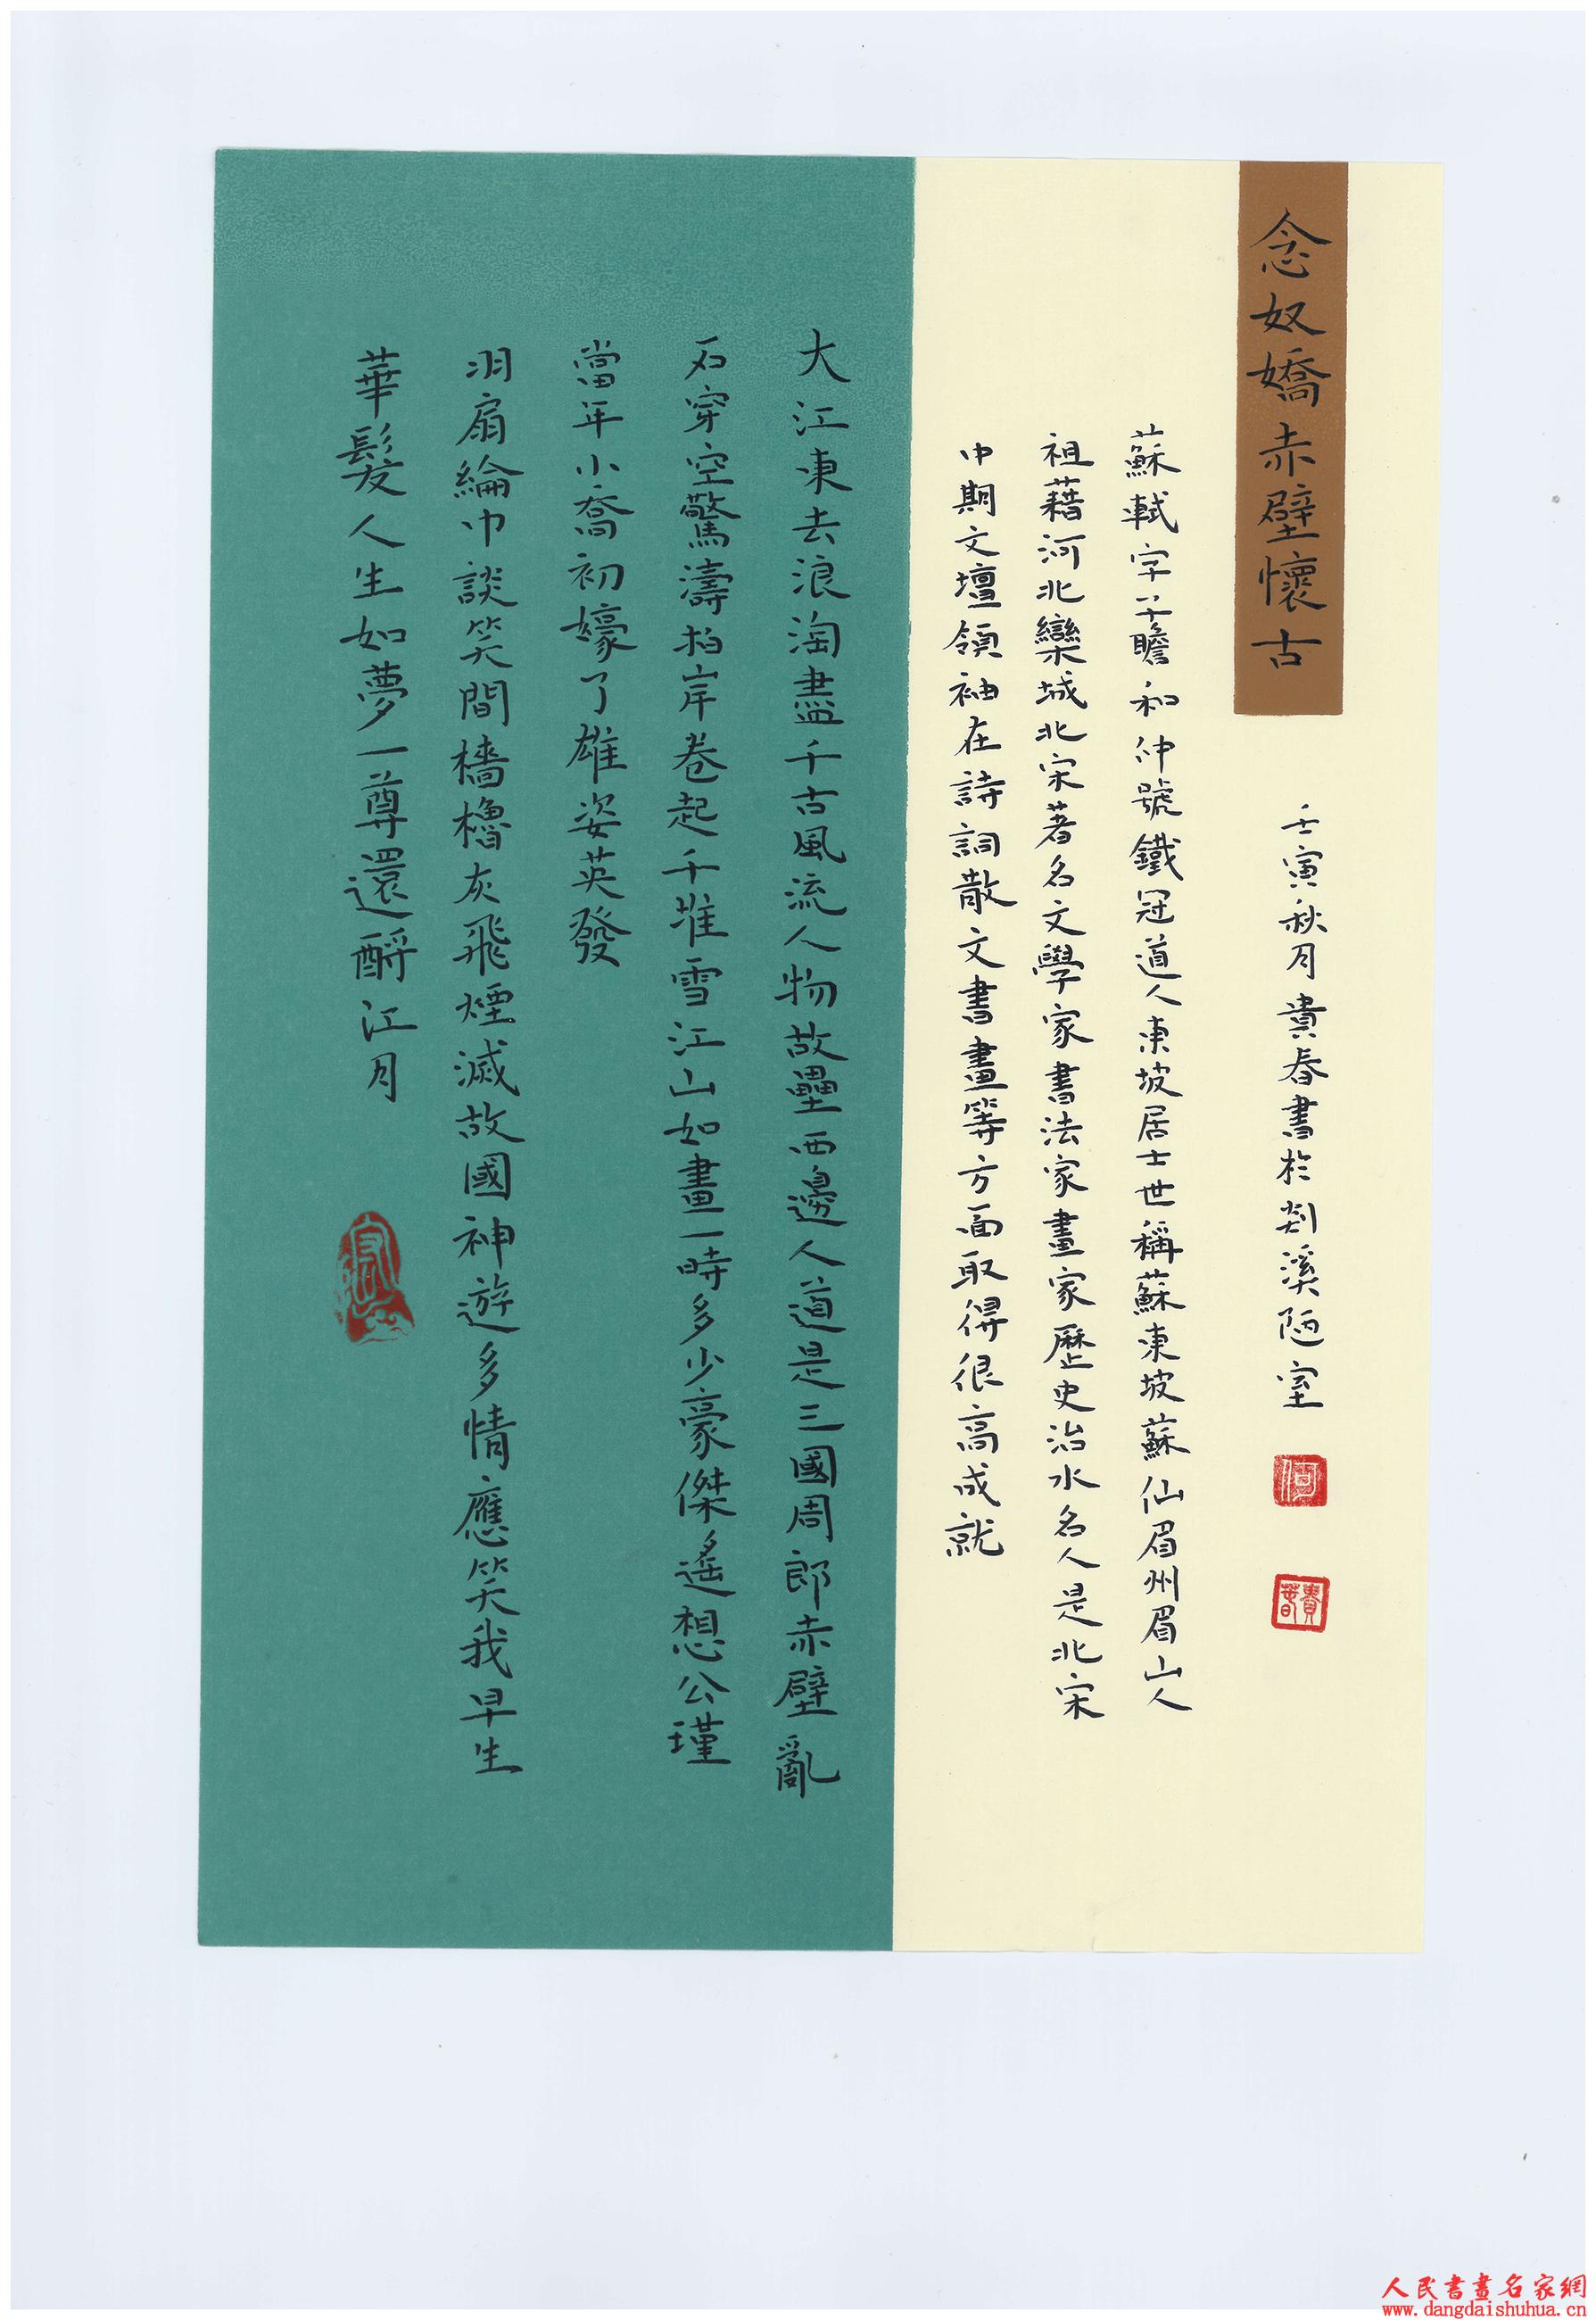 念奴嬌赤壁懷古
壬寅秋月貴春書於剡溪陋室
何
貴春
蘇軾字子瞻和仲號鐵冠道人東坡居士世稱蘇東坡蘇仙眉州眉山人
祖藉河北欒城北宋著名文學家書法家畫家歷史治水名人是北宋
中期文壇領袖在詩詞散文書畫等方面取得很高成就
大江東去浪淘盡千古風流人物故壘西邊人道是三國周郎赤壁亂
石穿空驚濤拍岸卷起千堆雪江山如畫一時多少豪傑遙想公瑾
當年小喬初嫁了雄姿英發
羽扇綸巾談笑間檣櫓灰飛煙滅故國神遊多情應笑我早生
華髮人生如夢一尊還酹江月
人民書畫名家網
www.dangdaishuhua.cn